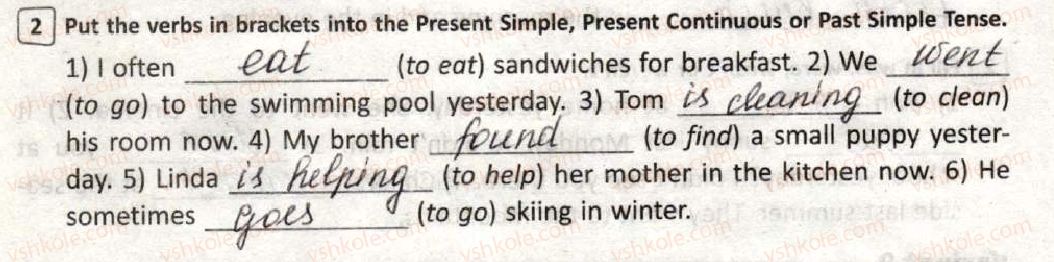 2 Put the verbs in brackets into the Present Simple, Present Continuous or Past Simple Tense.
1) I often eat (to eat) sandwiches for breakfast. 2) We went
(to go) to the swimming pool yesterday. 3) Tom is cleaning (to clean)
his room now. 4) My brother found (to find) a small puppy yester-
day. 5) Linda is helping (to help) her mother in the kitchen now. 6) He
sometimes goes (to go) skiing in winter.